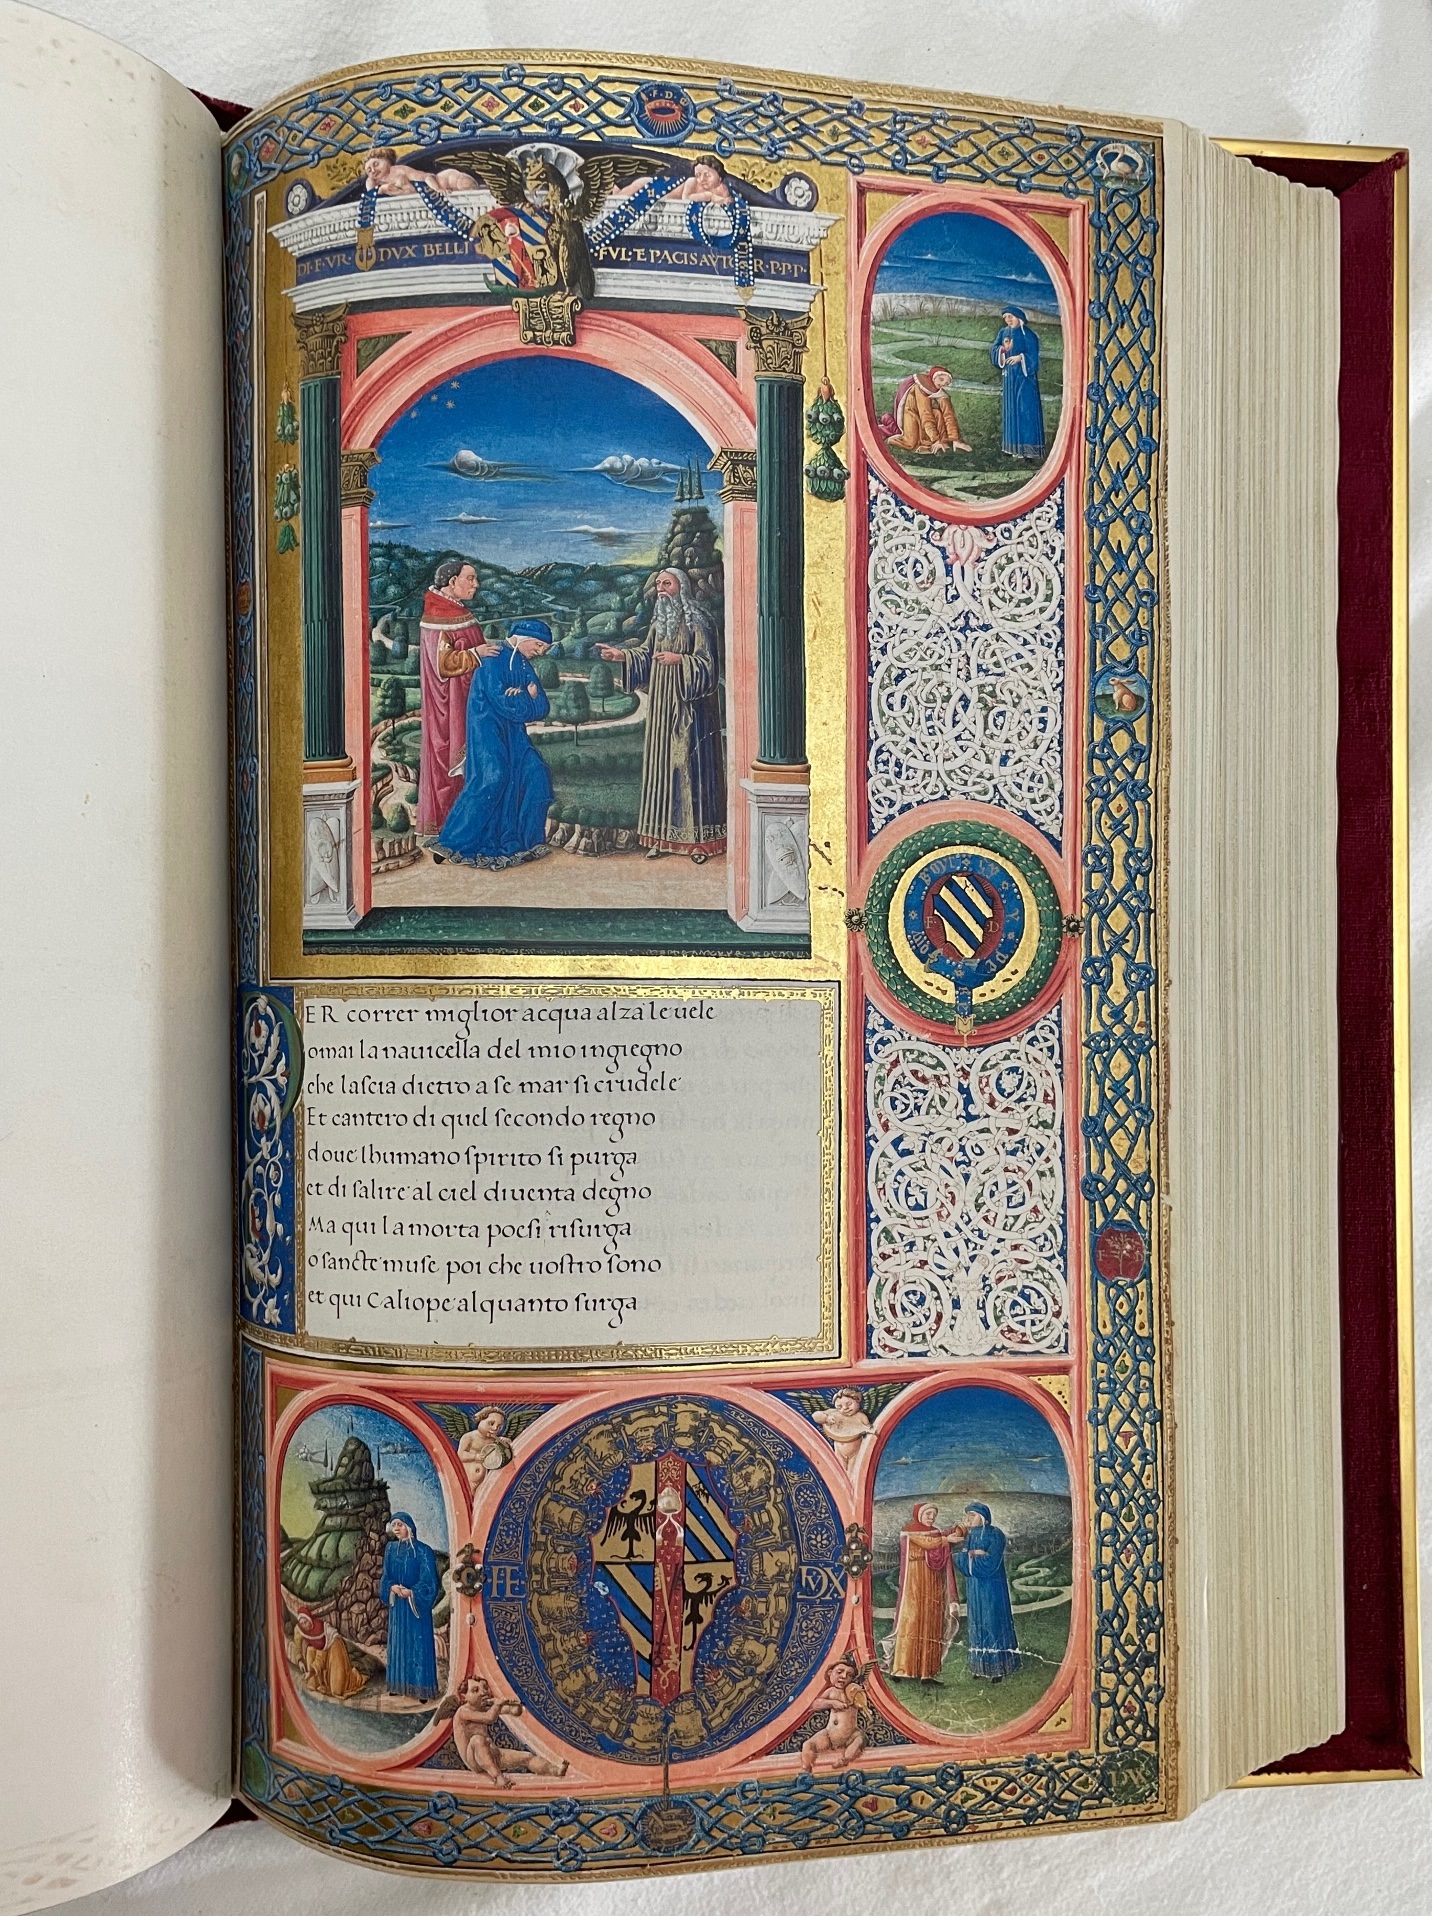 F. D.
DI·F·VR· DVX BELLI FVL·E PACIS AVTOR·P·P·P·
PER correr miglior acqua alza le uele
omai la nauicella del mio ingiegno
che lascia dietro a se mar si crudele
Et cantero di quel secondo regno
doue lhumano spirito si purga
et di salire al ciel diuenta degno
Ma qui la morta poesi risurga
o sancte muse poi che uostro sono
et qui Caliope alquanto surga
F D
FE DVX